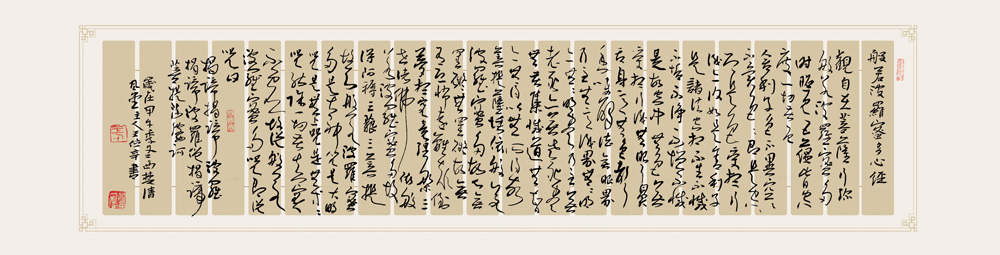 般若波羅蜜多心經
觀自在菩薩行深
般若波羅蜜多
時照見五蘊皆空
度一切苦厄
舍利子色不異空空
不異色色即是空
空即是色受想行
識亦復如是舍利子
是諸法空相不生不滅
不垢不淨不增不減
是故空中無色無
受想行識無眼耳鼻
舌身意無色聲
香味觸法無眼界
乃至無意識界無無明
亦無無明盡乃至無
老死亦無老死盡
無苦集滅道無智
亦無得以無所得故
菩提薩埵依般若
波羅蜜多故心無
罣礙無罣礙故無
有恐怖遠離顛倒
夢想究竟涅槃三
世諸佛依般
若波羅蜜多故
得阿耨三藐三菩提
故知般若波羅蜜
多是大神咒是大明
咒是無上咒是無等等
咒能除一切苦真實
不虛故說般若波
羅蜜多咒即說
咒曰
揭諦揭諦波羅
揭諦波羅僧揭諦
菩提薩婆訶
歲在甲午季冬西楚清
風堂主人王書